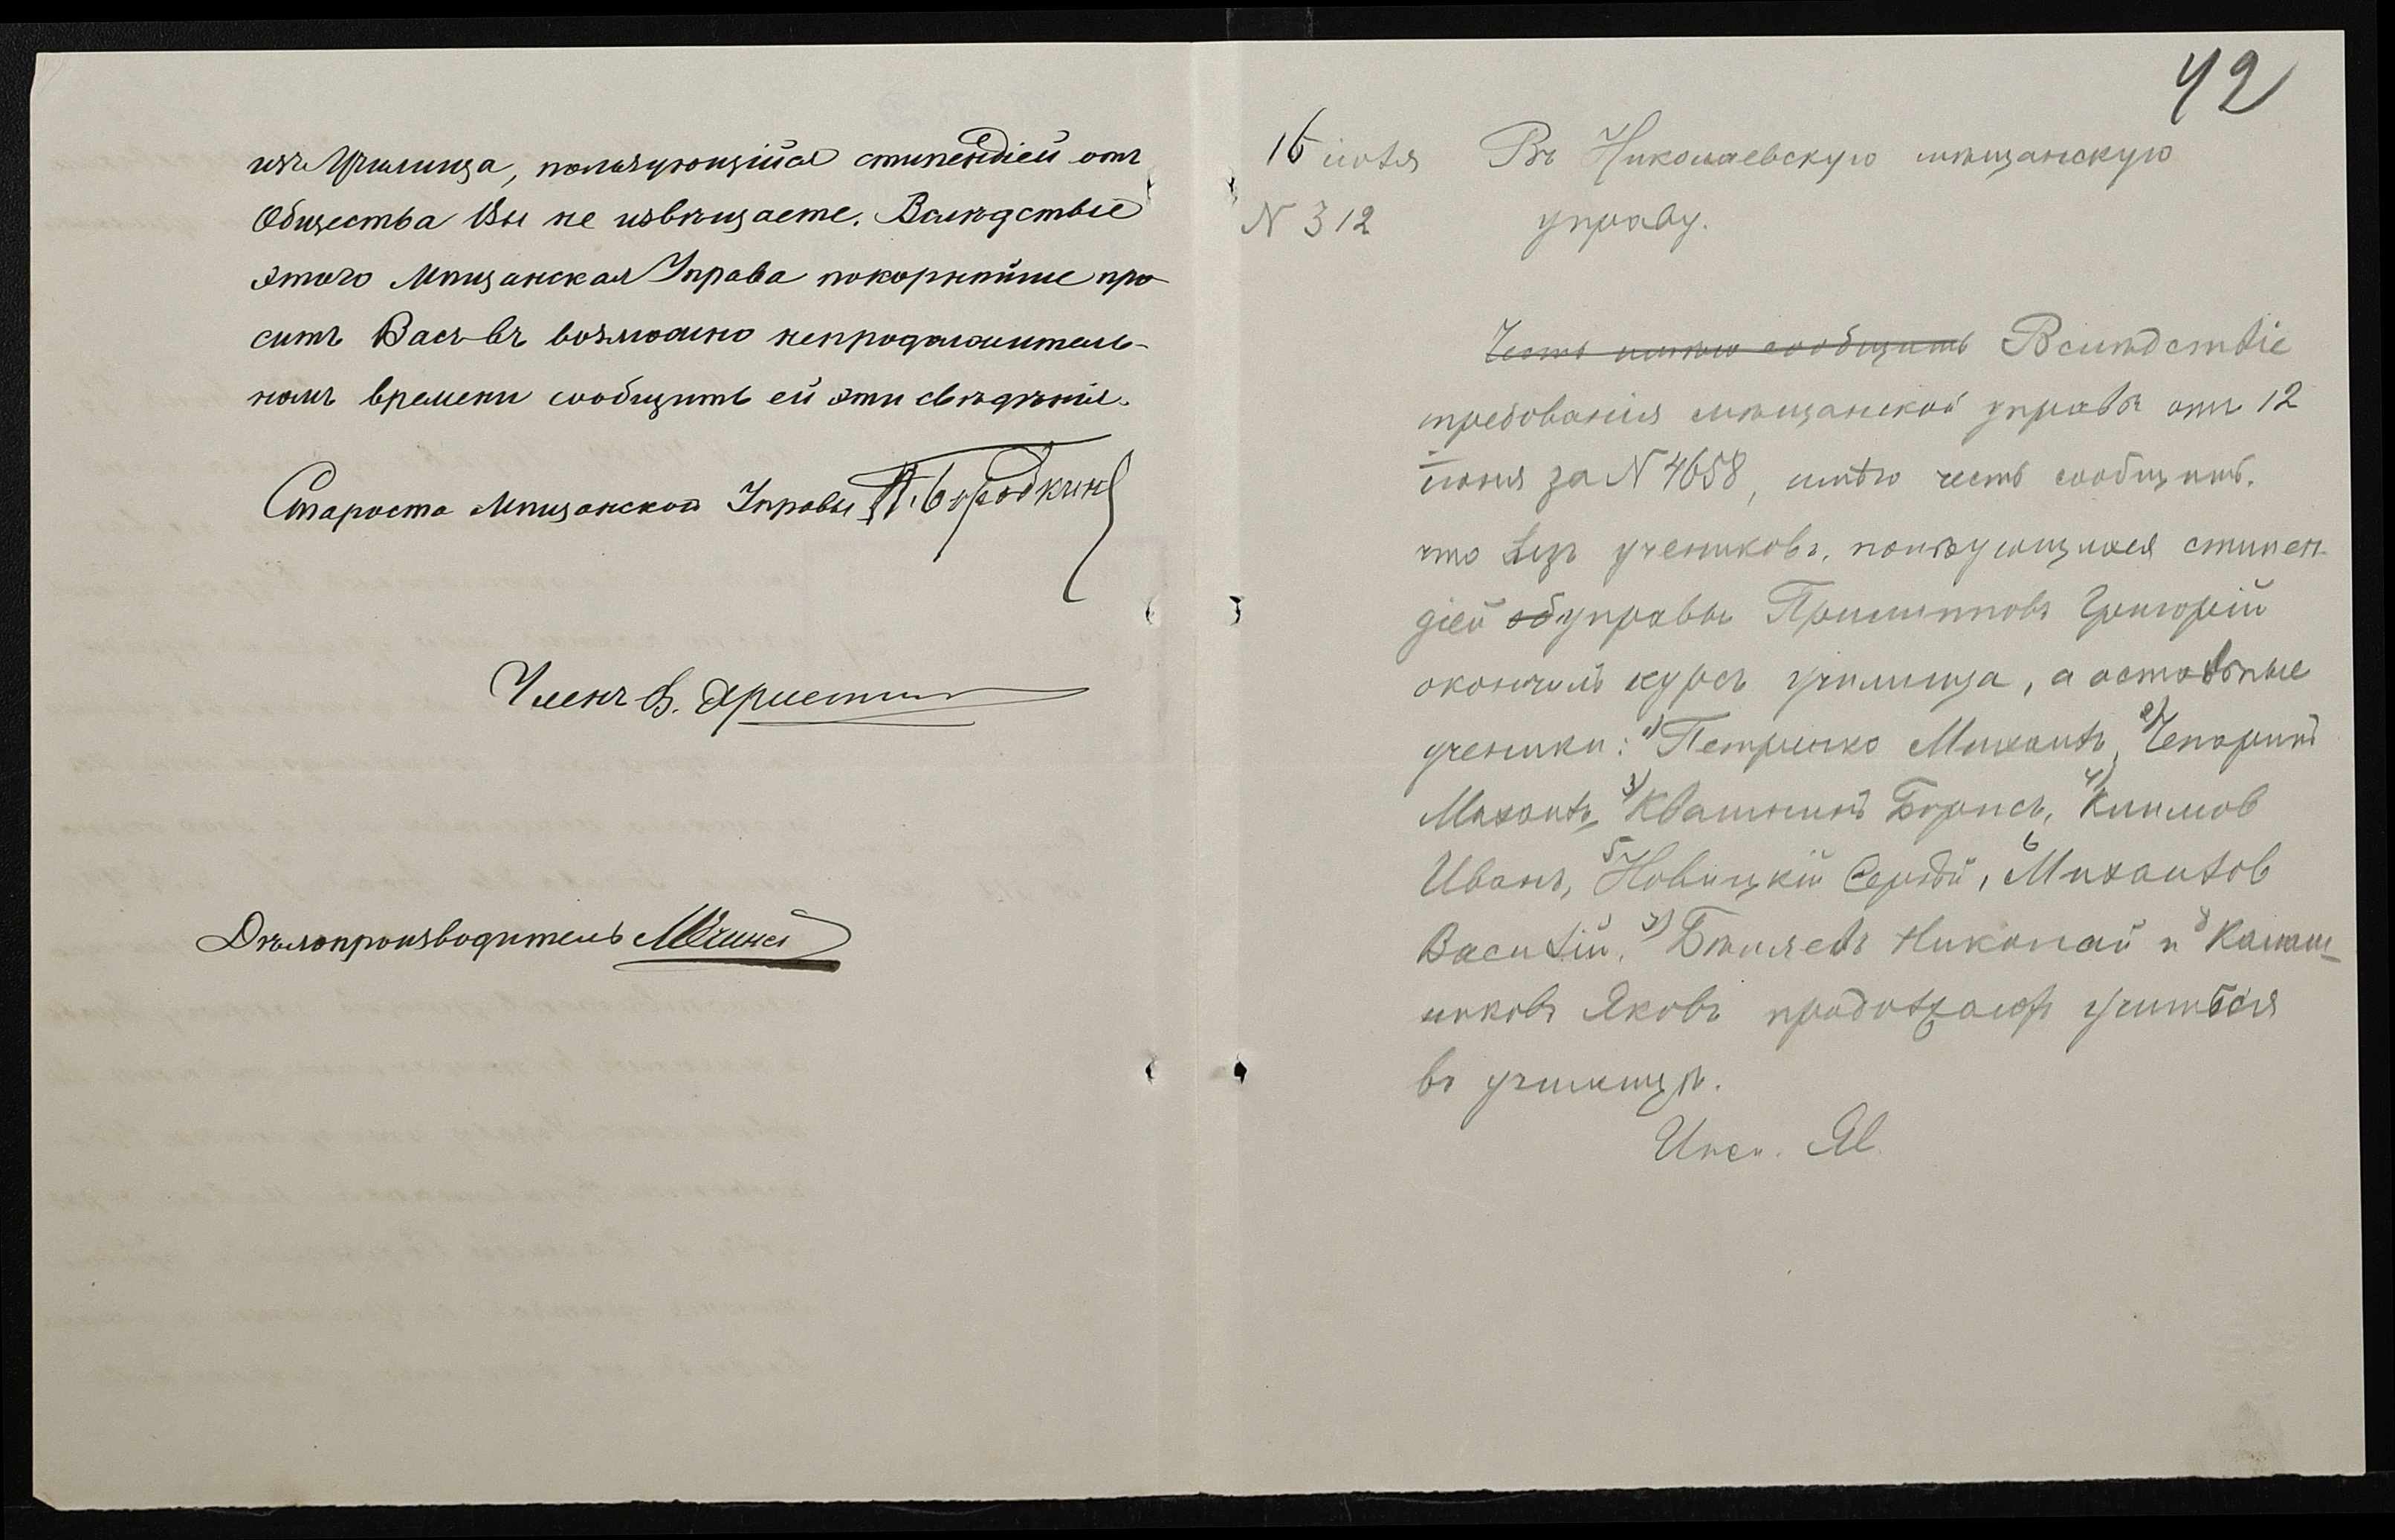 изъ Училища, пользующійся стипендіей отъ
Общества Вы не извѣщаете. Вслѣдствіе
этого Мѣщанская Управа покорнѣйше про-
ситъ Васъ въ возможно непродолжитель-
номъ времени сообщить ей эти свѣдѣнія.
Староста Мѣщанской Управы П. Бородкин
Членъ В.
Дѣлопроизводитель
42
16 іюля Въ Николаевскую мѣщанскую
N 312 управу.
Честь имѣю сообщить Вслѣдствіе
требованія мѣщанской управы отъ 12
іюня за N 4658, имѣю честь сообщить,
что изъ учениковъ, пользующихся стипен-
діей об управы Григорій
окончилъ курсъ училища, а остальные
ученики: 1) Петренко Михаилъ, 2) Чепоринъ
Михаилъ, 3) Квашнинъ Борисъ, 4) Климов
Иванъ, 5) Новицкій Сергѣй, 6 Михайлов
Василій, 7) Бѣляевъ Николай и 8 Калаш-
никовъ Яковъ продолжаютъ учиться
въ училищѣ.
Инсп. Я